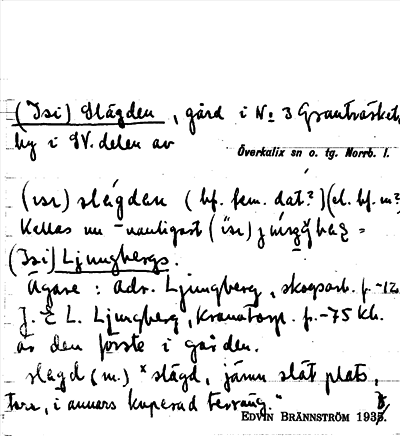 (Isi) Slägden, gård i No 3 Granträsket,
by i SV. delen av
Överkalix sn o. tg. Norrb. l.
(ısı) slägdan (bf. fem. dat?) (el. bf. m?)
Kallas nu vanligast
(Isi) Ljungbergs.
Ägare: Adr. Ljungberg, skogsarb. f. -12
J. E L. Ljungberg, kronotorp. f. -75 Kb.
är den förste i gården.
slägd (m.) x slägd, jämn slät plats,
torr, i annars kuperad terräng."
EDVIN BRÄNNSTRÖM 193